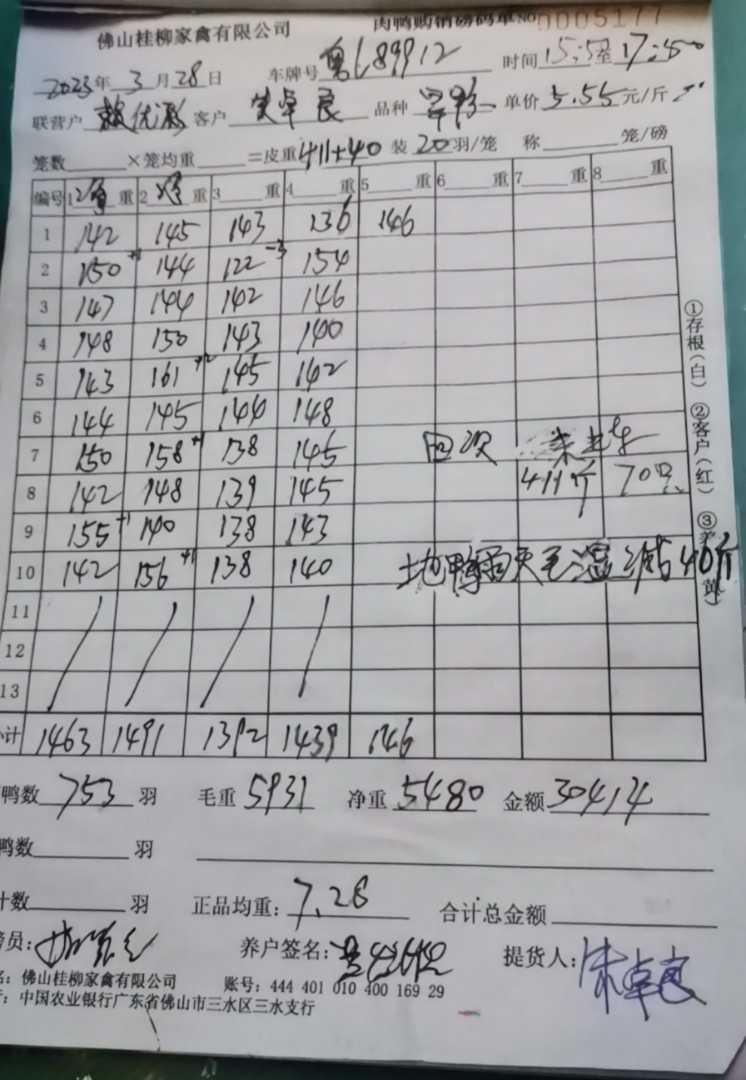 佛山桂柳家禽有限公司 肉鸭购销磅码单 NO 0005177
2023年 3月 28日 车牌号 粤L89912 时间 15:5 至 17:50
联营户 客户 朱卓良 品种 单价 5.55 元/斤
笼数 ×笼均重 =皮重 411+40 装 20 羽/笼 称 笼/磅
编号 1 重 2 重 3 重 4 重 5 重 6 重 7 重 8 重
1 142 145 143 136 146
2 150+1 144 122-3 154
3 147 144 142 146
4 148 150 143 140
5 143 161+2 145 142
6 144 145 144 148
7 150 158+1 138 145 四次
8 142 148 139 145 411斤 70只
9 155+1 140 138 143
10 142 156+1 138 140 地鸭雨天毛湿 40斤
11
12
13
小计 1463 1491 1392 1439 146
①存根(白) ②客户(红) ③养 (黄)
鸭数 753 羽 毛重 5931 净重 5480 金额 30414
鸭数 羽
计数 羽 正品均重: 7.28 合计总金额
员: 养户签名: 提货人: 朱卓良
名: 佛山桂柳家禽有限公司 账号: 444 401 010 400 169 29
行: 中国农业银行广东省佛山市三水区三水支行